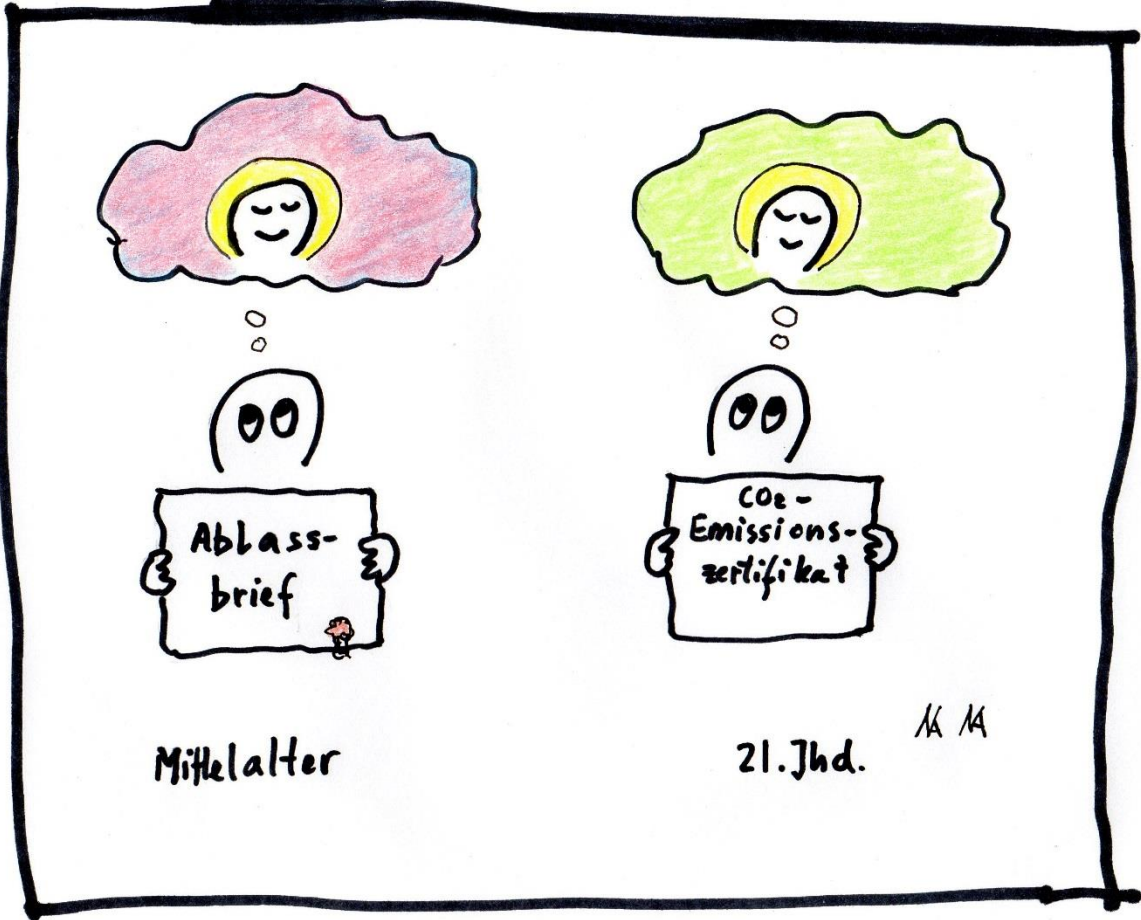 Ablass-
brief
Mittelalter
CO₂-
Emissions-
zertifikat
21. Jhd.